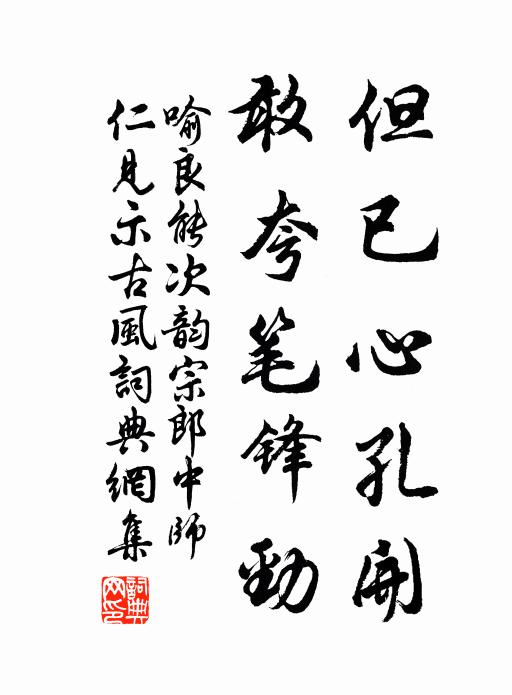 但已心孔開
敢夸笔锋勁
喻良能次韵宗郎中師
仁見示古風詞典網集
詞典
网印